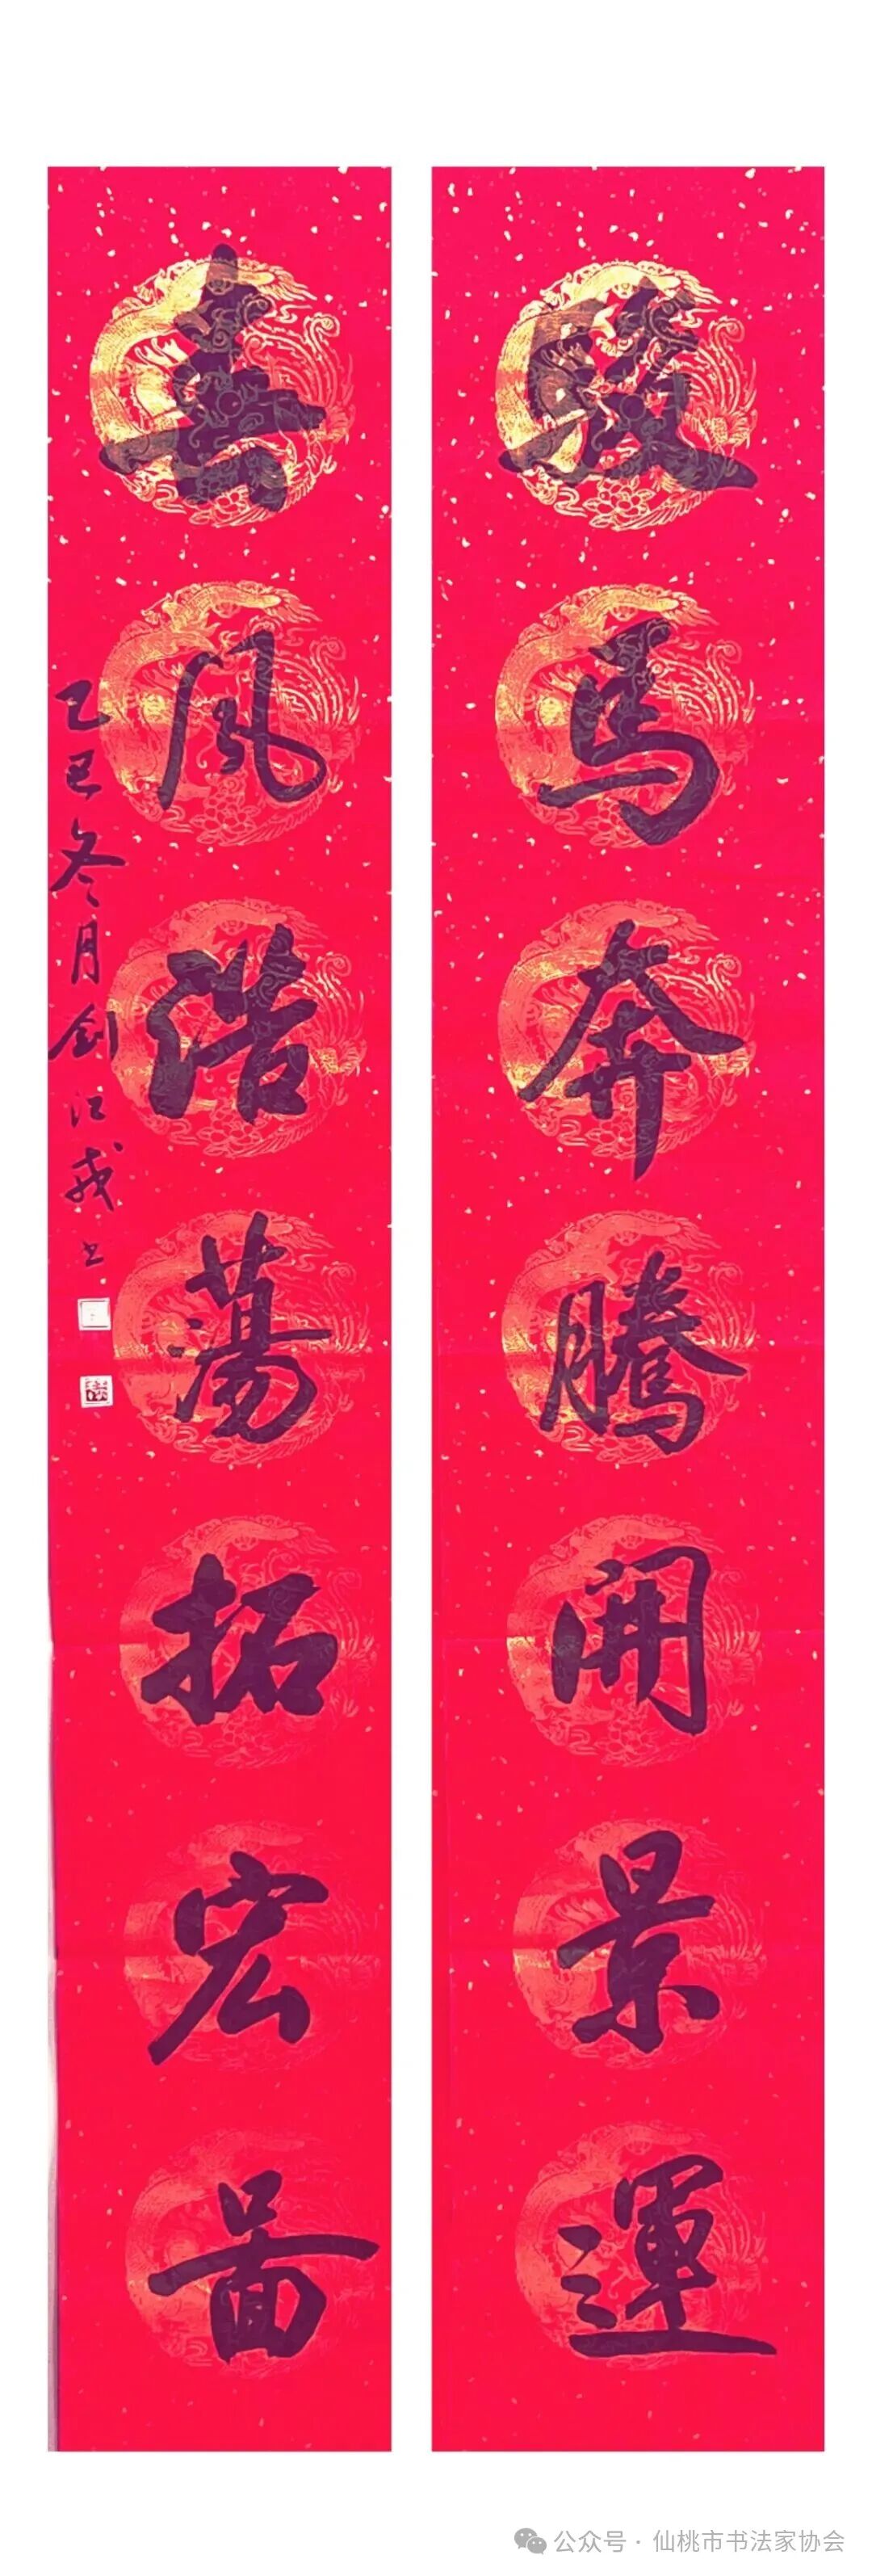 骏馬奔騰開景運
春風浩蕩拓宏圖
乙巳冬月剑江書
公众号·仙桃市书法家协会